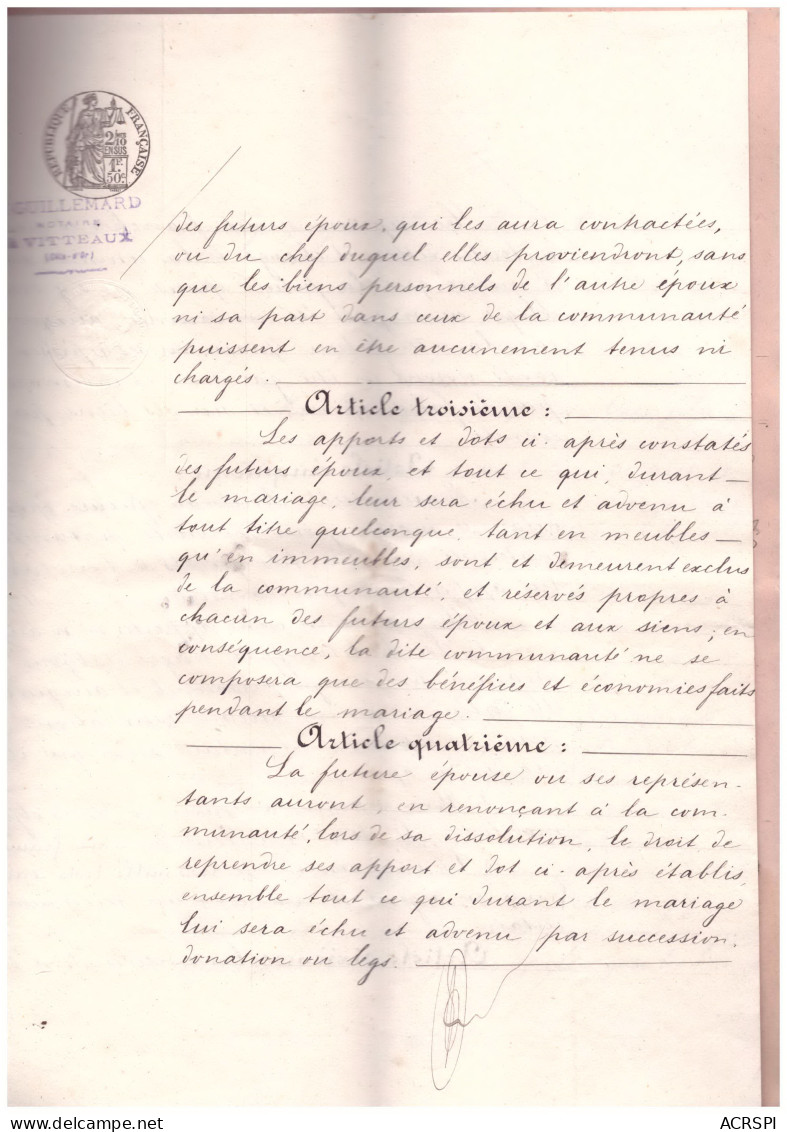 RÉPUBLIQUE FRANÇAISE
2/10
EN SUS
1F.
50c.
GUILLEMARD
NOTAIRE
VITTEAUX
des futurs époux, qui les aura contractées,
ou du chef duquel elles proviendront, sans
que les biens personnels de l'autre époux
ni sa part dans ceux de la communauté
puissent en être aucunement tenus ni
chargés.
Article troisième :
Les apports et dots ci-après constatés
des futurs époux, et tout ce qui, durant
le mariage, leur sera échu et advenu à
tout titre quelconque, tant en meubles
qu'en immeubles, sont et demeurent exclus
de la communauté, et réservés propres à
chacun des futurs époux et aux siens ; en
conséquence, la dite communauté ne se
composera que des bénéfices et économies faits
pendant le mariage.
Article quatrième :
La future épouse ou ses représen-
tants auront, en renonçant à la com-
munauté, lors de sa dissolution, le droit de
reprendre ses apport et dot ci-après établis,
ensemble tout ce qui durant le mariage
lui sera échu et advenu par succession,
donation ou legs.
ACRSPI